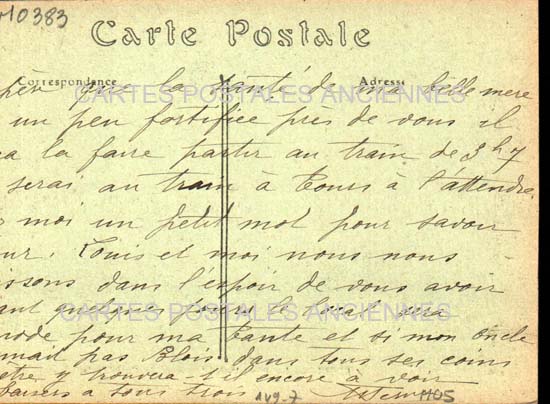 M10383
Carte Postale
Correspondance
Adresse
CARTES POSTALES ANCIENNES
père que la santé de ma belle mere
un peu fortifiée près de vous il
la faire partir au train de 3h7
serai au train à Tours à l'attendre
moi un petit mot pour savoir
ur. Louis et moi nous nous
issons dans l'espoir de vous avoir
pour
CARTES POSTALES ANCIENNES
ode pour ma tante et si mon oncle
nnait pas Blois dans tous ses coins
etre y trouvera t il encore à voir
baisers a tous trois
149-7
1105